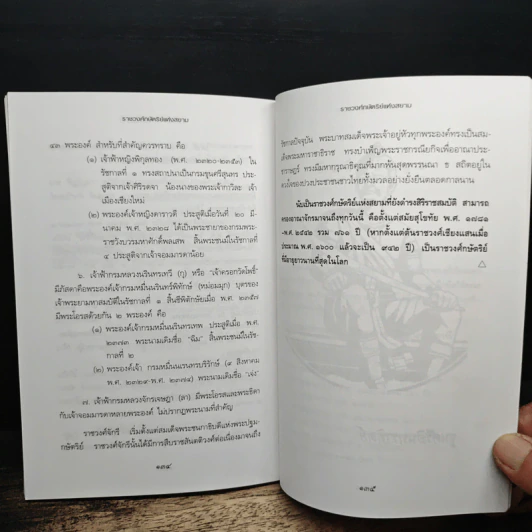 ราชวงศ์กษัตริย์แห่งสยาม
๔๓ พระองค์ สำหรับที่สำคัญควรทราบ คือ
(๑) เจ้าฟ้าหญิงพิกุลทอง (พ.ศ. ๒๓๒๐-๒๓๕๓) ใน
รัชกาลที่ ๑ ทรงสถาปนาเป็นกรมขุนศรีสุนทร ประ
สูติจากเจ้าศิริรดจา น้องนางของพระเจ้ากาวิละ เจ้า
เมืองเชียงใหม่
(๒) พระองค์เจ้าหญิงดาราวดี ประสูติเมื่อวันที่ ๒๐ มี-
นาคม พ.ศ. ได้เป็นพระชายาของกรมพระ-
ราชวังบวรมหาศักดิ์พลเสพ สิ้นพระชนม์ในรัชกาลที่
๔ ประสูติจากเจ้าจอมมารดาน้อย
๖. เจ้าฟ้ากรมหลวงนรินทรเทวี (กุ) หรือ "เจ้าครอกวัดโพธิ์"
มีภัสดาคือพระองค์เจ้ากรมหมื่นนรินทร์พิทักษ์ (หม่อมมุก) บุตรของ
เจ้าพระยามหาสมบัติในรัชกาลที่ ๑ สิ้นชีพิตักษัยเมื่อ พ.ศ.
มีพระโอรสด้วยกัน ๒ พระองค์ คือ
(๑) พระองค์เจ้ากรมหมื่นนรินทรเทพ ประสูติเมื่อ พ.ศ.
๒๓๑๓ พระนามเดิมชื่อ "ฉิม" สิ้นพระชนม์ในรัช-
กาลที่ ๒
(๒) พระองค์เจ้า กรมหมื่นนเรนทรบริรักษ์ (๙ สิงหาคม
พ.ศ. พระนามเดิมชื่อ "เจ่ง"
๗. เจ้าฟ้ากรมหลวงจักรเจษฎา (ลา) มีพระโอรสและพระธิดา
กับเจ้าจอมมารดาหลายพระองค์ ไม่ปรากฏพระนามที่สำคัญ
ราชวงศ์จักรี เริ่มตั้งแต่สมเด็จพระชนกาธิบดีแห่งพระปฐม-
กษัตริย์ ราชวงศ์จักรีนั้นได้มีการสืบราชสันตติวงศ์ต่อเนื่องมาจนถึง
๑๓๔
ราชวงศ์กษัตริย์แห่งสยาม
รัชกาลปัจจุบัน พระบาทสมเด็จพระเจ้าอยู่หัวทุกพระองค์ทรงเป็นสม-
เด็จพระมหาราชาธิราช ทรงบำเพ็ญพระราชกรณียกิจเพื่ออาณาประ-
ชาราษฎร์ ทรงมีมหากรุณาธิคุณที่มากพ้นสุดพรรณนา ๆ สถิตอยู่ใน
ดวงใจของปวงประชาชนชาวไทยทั้งมวลอย่างยั่งยืนตลอดกาลนาน
นับเป็นราชวงศ์กษัตริย์แห่งสยามที่ยังดำรงสิริราชสมบัติ สามารถ
ครองอาณาจักรมาจนถึงทุกวันนี้ คือตั้งแต่สมัยสุโขทัย พ.ศ. ๑๗๘๑
-พ.ศ. ๒๕๔๒ รวม ๗๖๑ ปี (หากตั้งแต่ต้นราชวงศ์เชียงแสนเมื่อ
ประมาณ พ.ศ. ๑๖๐๐ แล้วจะเป็น ๙๔๒ ปี) เป็นราชวงศ์กษัตริย์
ที่มีอายุยาวนานที่สุดในโลก
๑๓๕